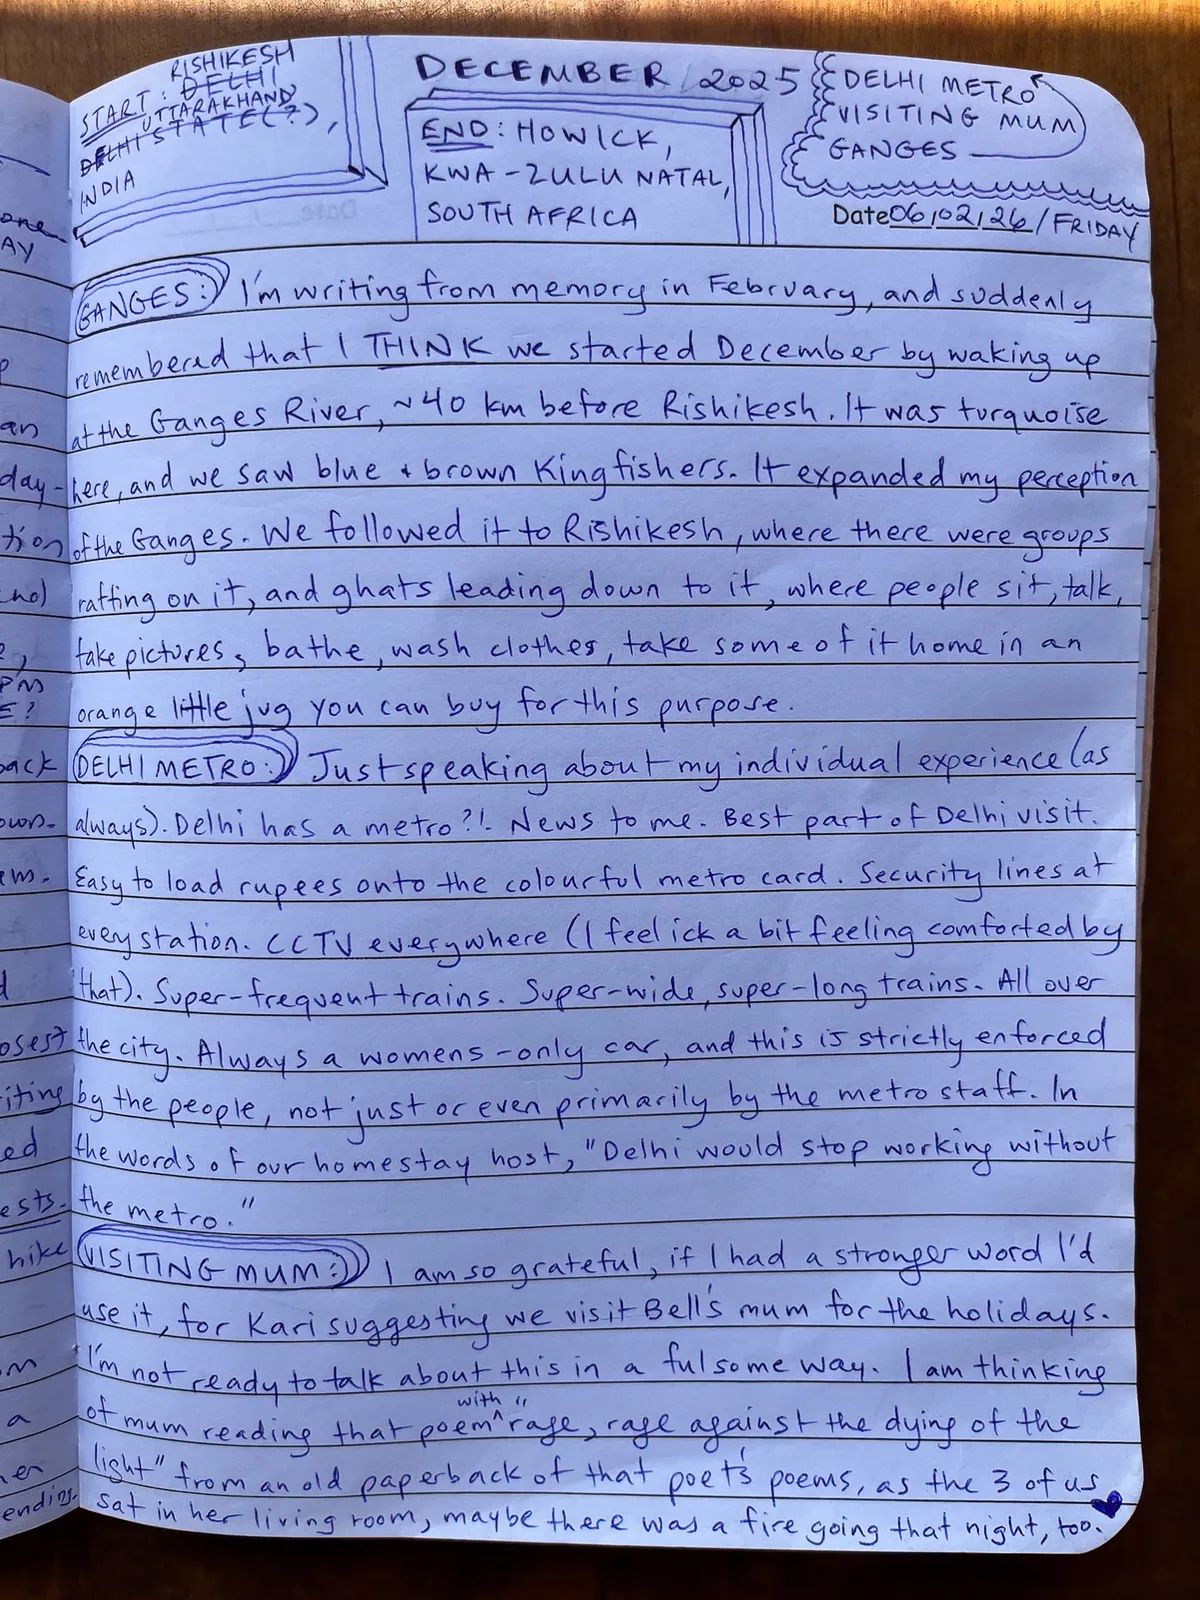 START: RISHIKESH
DELHI
UTTARAKHAND
DELHI STATE(?),
INDIA
DECEMBER 2025
END: HOWICK,
KWA-ZULU NATAL,
SOUTH AFRICA
DELHI METRO
VISITING MUM
GANGES
Date 06/02/26/FRIDAY
GANGES: I'm writing from memory in February, and suddenly
remembered that I THINK we started December by waking up
at the Ganges River, ~40 km before Rishikesh. It was turquoise
here, and we saw blue + brown Kingfishers. It expanded my perception
of the Ganges. We followed it to Rishikesh, where there were groups
rafting on it, and ghats leading down to it, where people sit, talk,
take pictures, bathe, wash clothes, take some of it home in an
orange little jug you can buy for this purpose.
DELHI METRO: Just speaking about my individual experience (as
always). Delhi has a metro?!. News to me. Best part of Delhi visit.
Easy to load rupees onto the colourful metro card. Security lines at
every station. CCTV everywhere (I feel ick a bit feeling comforted by
that). Super-frequent trains. Super-wide, super-long trains. All over
the city. Always a womens-only car, and this is strictly enforced
by the people, not just or even primarily by the metro staff. In
the words of our homestay host, "Delhi would stop working without
the metro."
VISITING MUM: I am so grateful, if I had a stronger word I'd
use it, for Kari suggesting we visit Bell's mum for the holidays.
I'm not ready to talk about this in a fulsome way. I am thinking
of mum reading that poem with "rage, rage against the dying of the
light" from an old paperback of that poet's poems, as the 3 of us
sat in her living room, maybe there was a fire going that night, too.
one
AY
an
day-
tion
no)
PM
E?
back
own.
em.
osest
iting
ed
ests.
hike
a
ending.